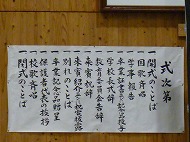 式次第
一 開式のことば
一 国歌斉唱
一 学事報告
一 卒業証書並びに記念品授与
一 学校長式辞
一 教育委員会告辞
一 来賓祝辞
一 来賓紹介並びに祝電披露
一 別れのことば
一 卒業記念品贈呈
一 保護者代表の挨拶
一 校歌斉唱
一 閉式のことば